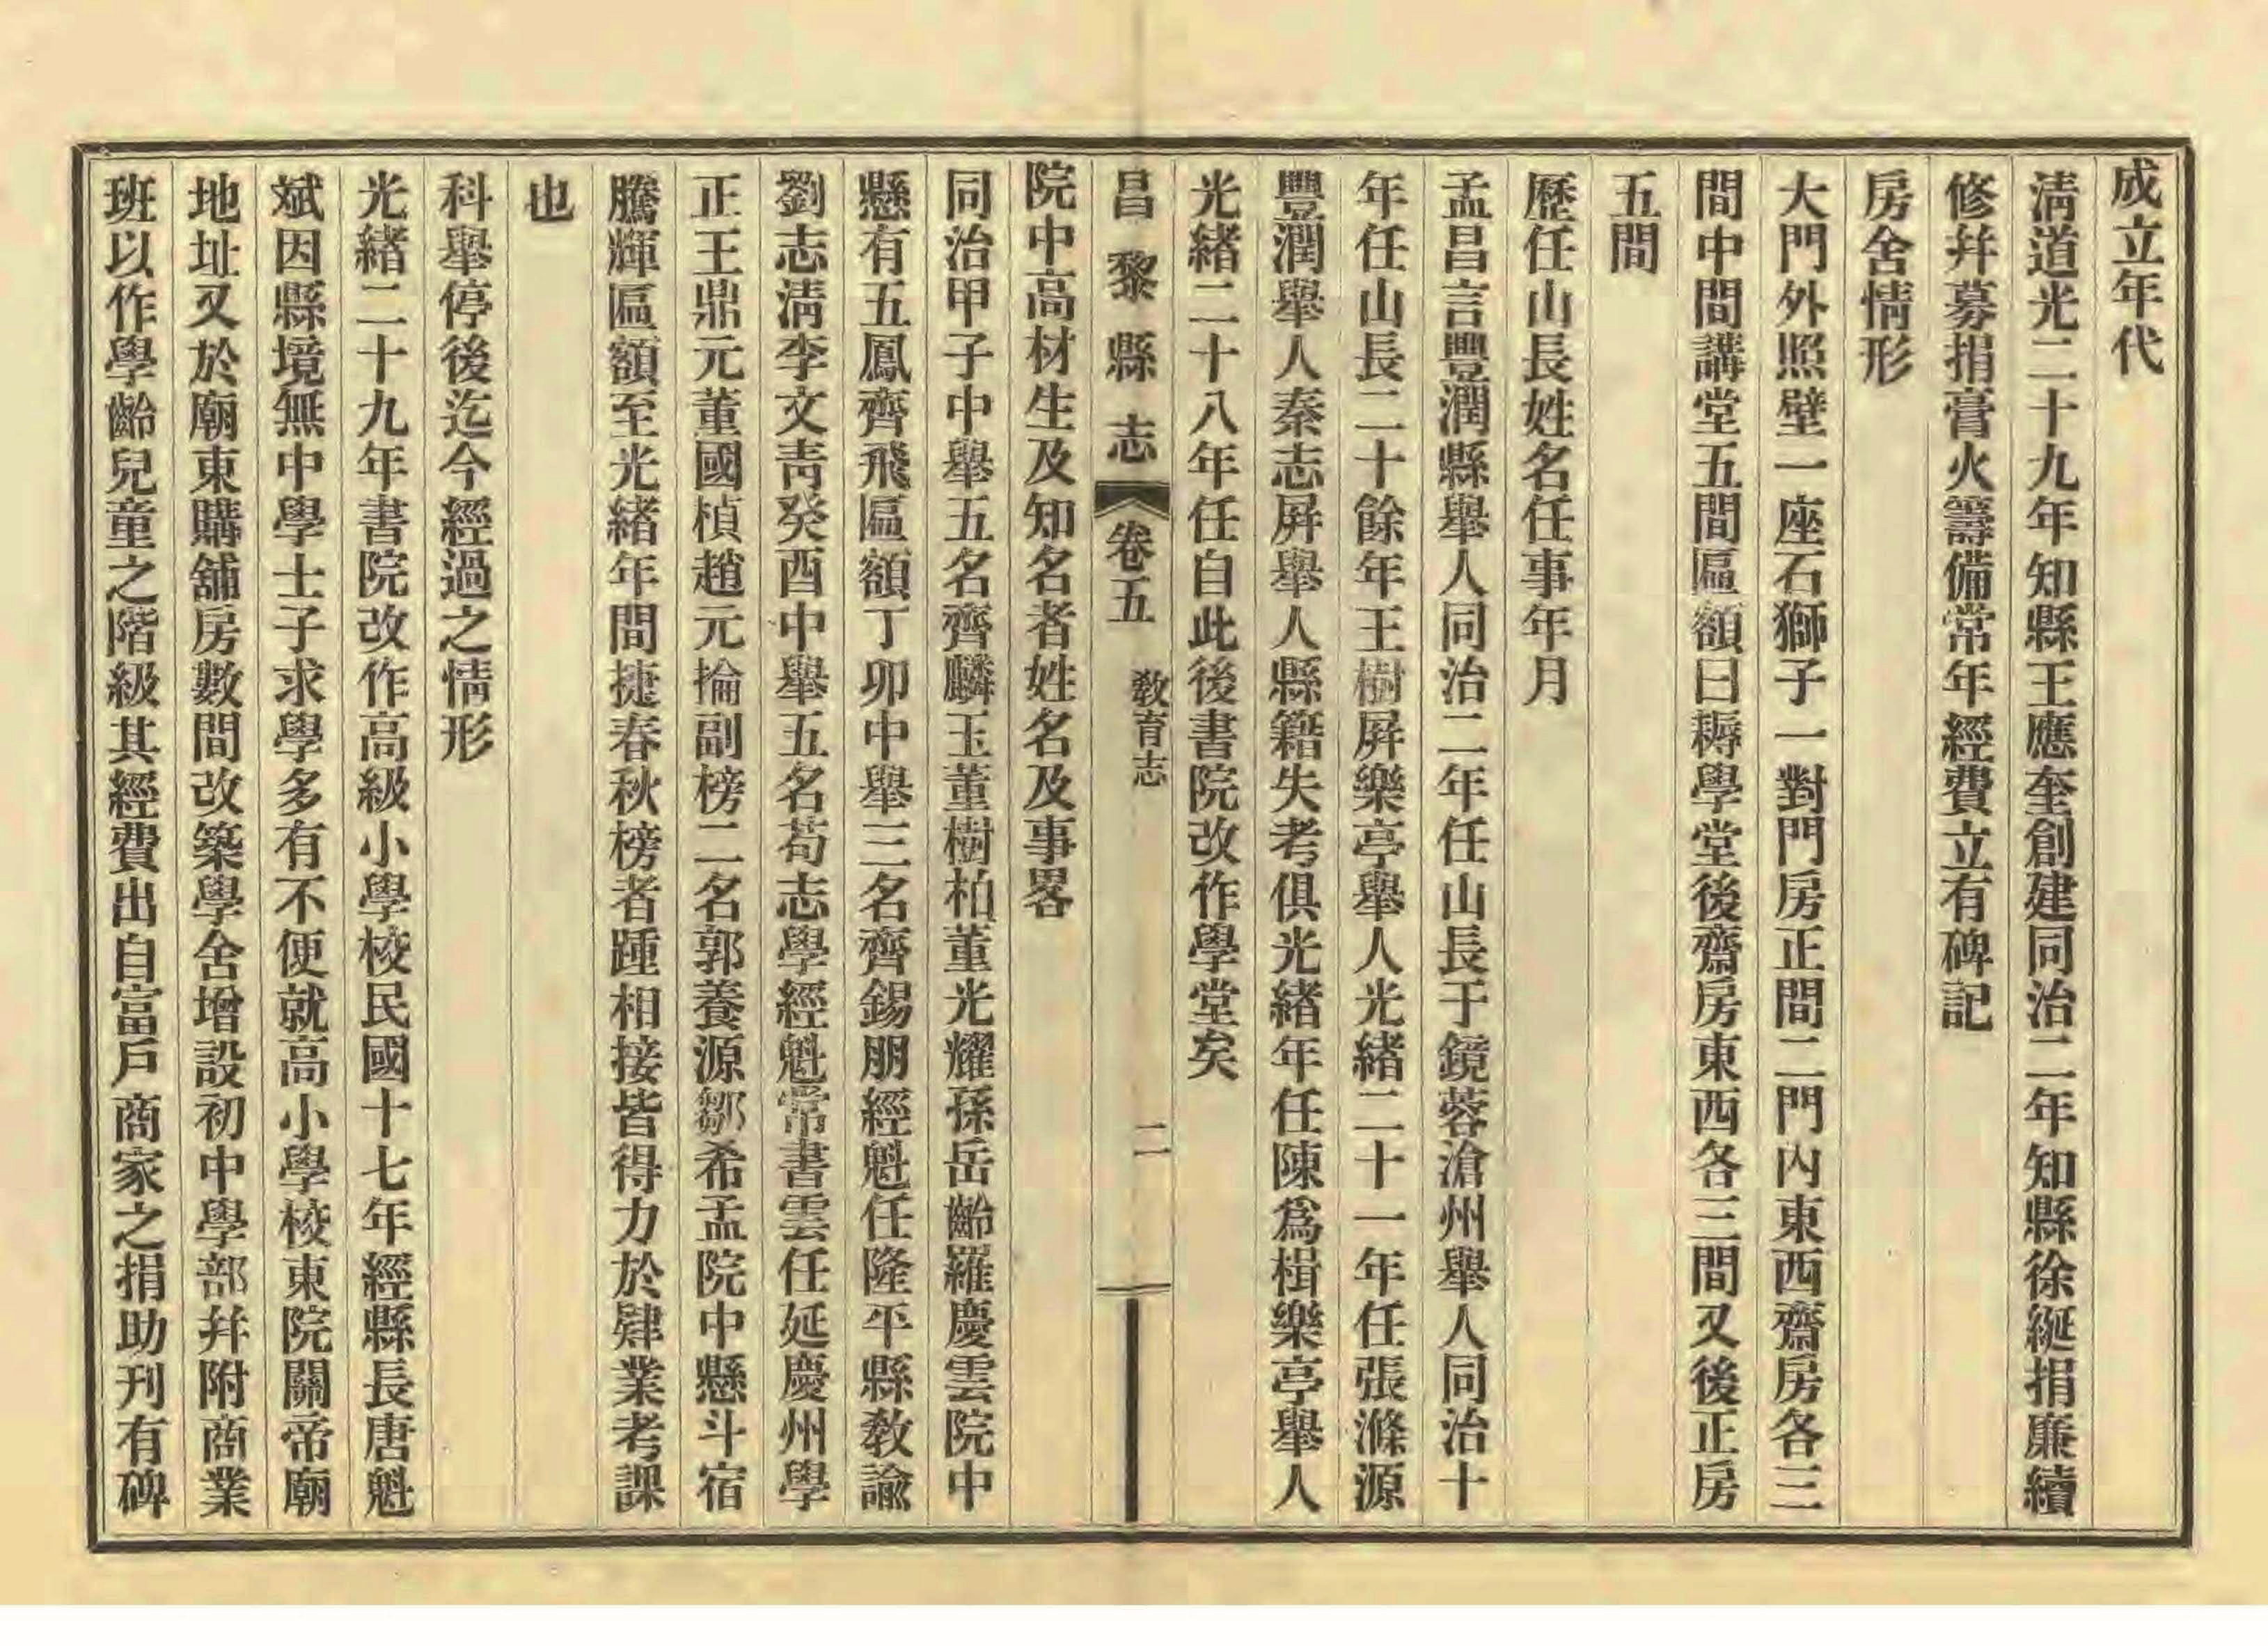 成立年代
淸道光二十九年知縣王應奎創建同治二年知縣徐綖捐廉續
修幷募捐膏火籌備常年經費立有碑記
房舍情形
大門外照壁一座石獅子一對門房正間二門內東西齋房各三
間中間講堂五間匾額曰耨學堂後齋房東西各三間又後正房
五間
歷任山長姓名任事年月
孟昌言豐潤縣舉人同治二年任山長于鏡蓉滄州舉人同治十
年任山長二十餘年王樹屛樂亭舉人光緒二十一年任張滌源
豐潤舉人秦志屛舉人縣籍失考俱光緒年任陳爲楫樂亭舉人
光緒二十八年任自此後書院改作學堂矣
昌黎縣志 卷五 敎育志 二
院中高材生及知名者姓名及事畧
同治甲子中舉五名齊麟玉董樹柏董光耀孫岳齡羅慶雲院中
懸有五鳳齊飛匾額丁卯中舉三名齊錫朋經魁任隆平縣敎諭
劉志淸李文靑癸酉中舉五名荀志學經魁常書雲任延慶州學
正王鼎元董國楨趙元掄副榜二名郭養源鄒希孟院中懸斗宿
騰輝匾額至光緒年間捷春秋榜者踵相接皆得力於肄業考課
也
科舉停後迄今經過之情形
光緒二十九年書院改作高級小學校民國十七年經縣長唐魁
斌因縣境無中學士子求學多有不便就高小學校東院關帝廟
地址又於廟東購舖房數間改築學舍增設初中學部幷附商業
班以作學齡兒童之階級其經費出自富戶商家之捐助刋有碑